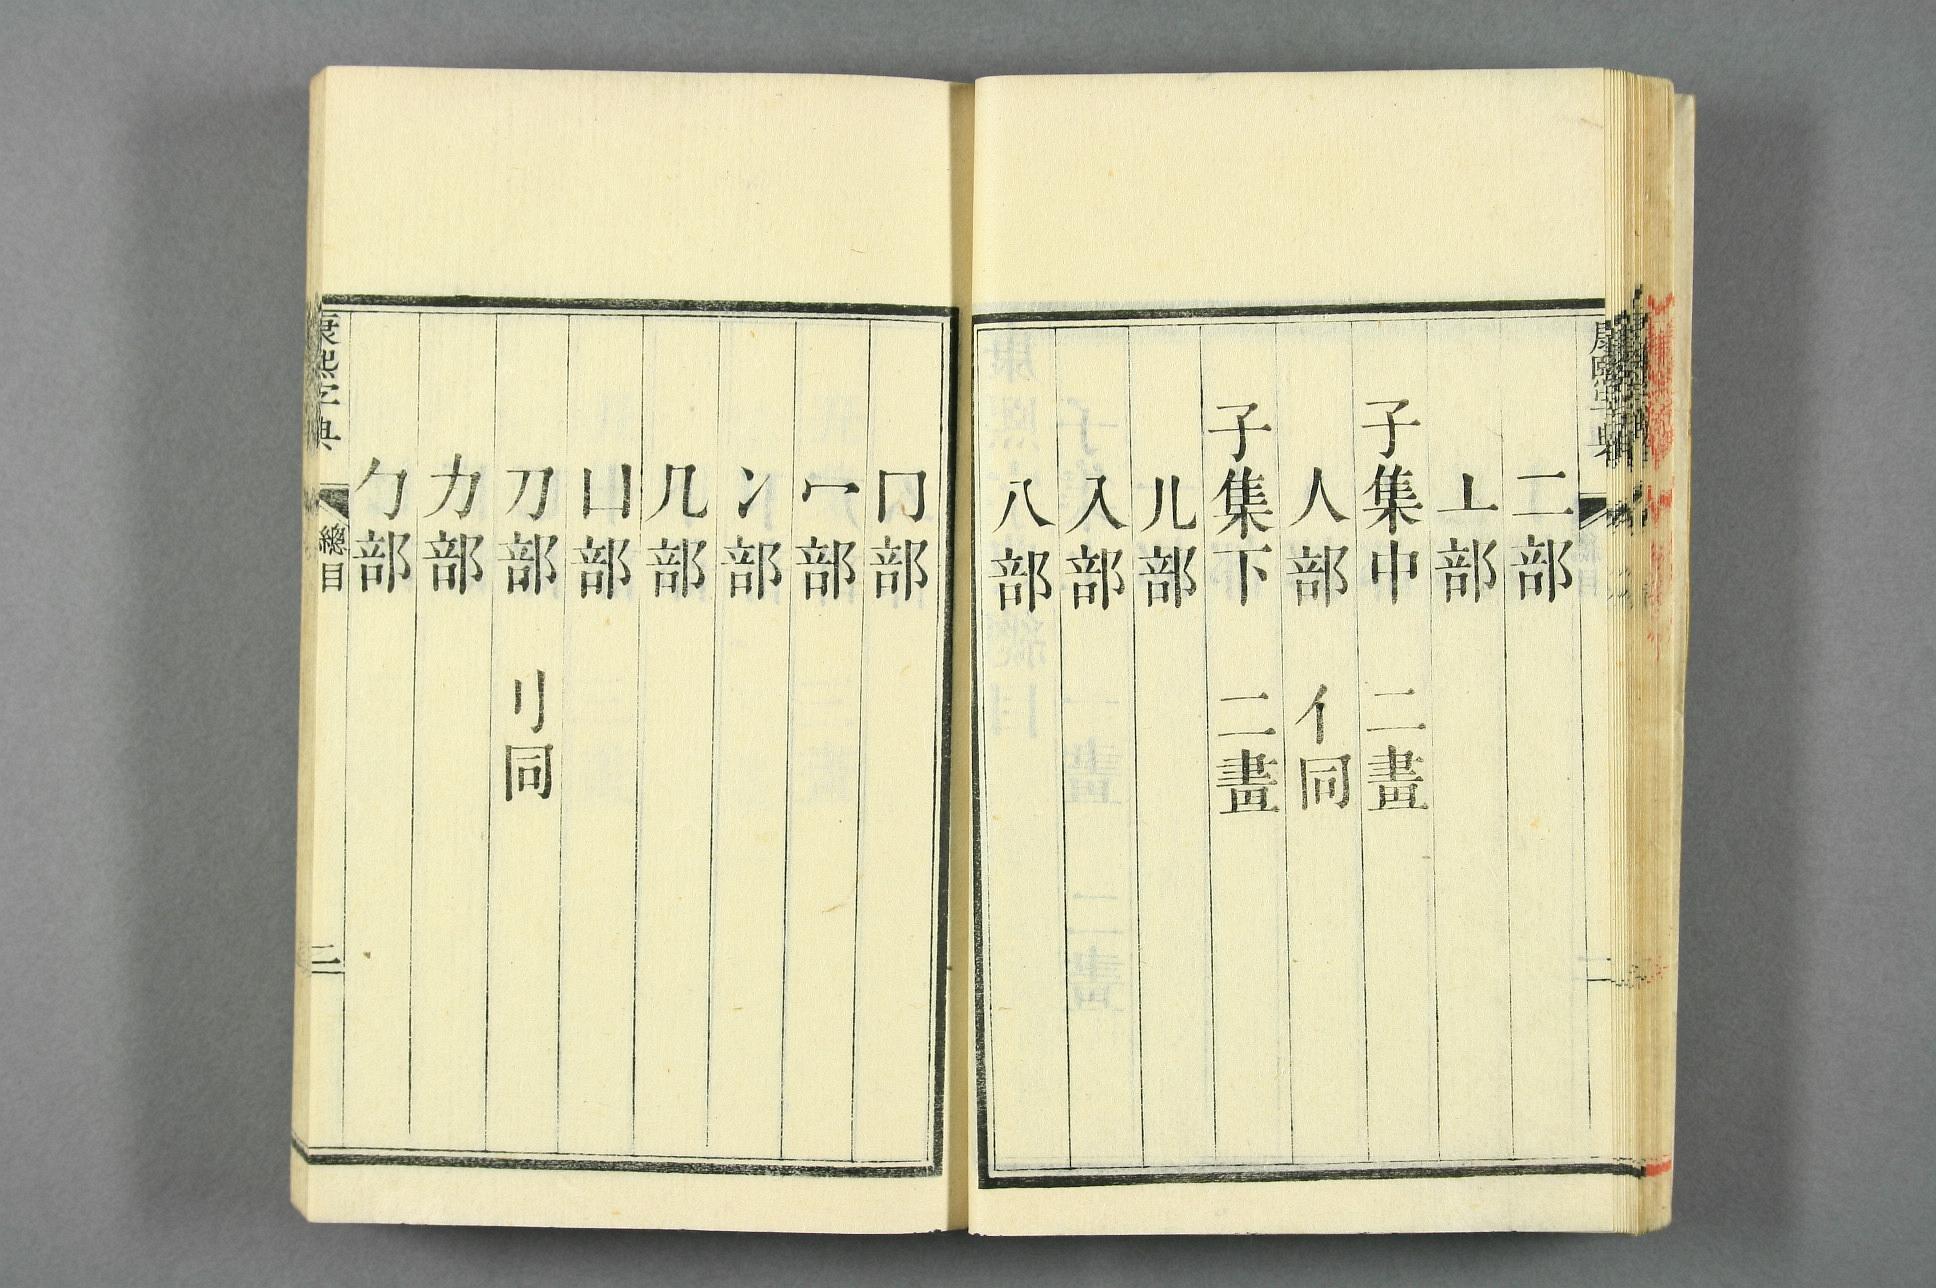 二部
亠部
子集中 二畫
人部 亻同
子集下 二畫
儿部
入部
八部
冂部
冖部
冫部
几部
凵部
刀部 刂同
力部
勹部
康熙字典 總目 二